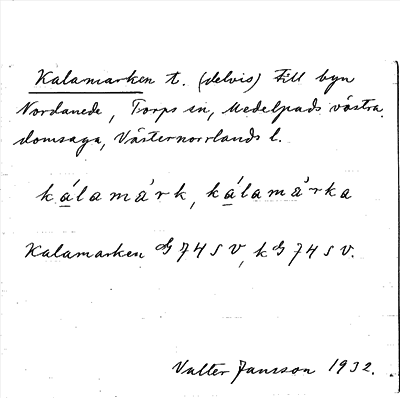 Kalamarken t. (delvis) till byn
Nordanede, Torps sn, Medelpads västra
domsaga, Västernorrlands l.
kálamárk, kálamárka
Kalamarken G74SV, k G74SV.
Valter Jansson 1932.